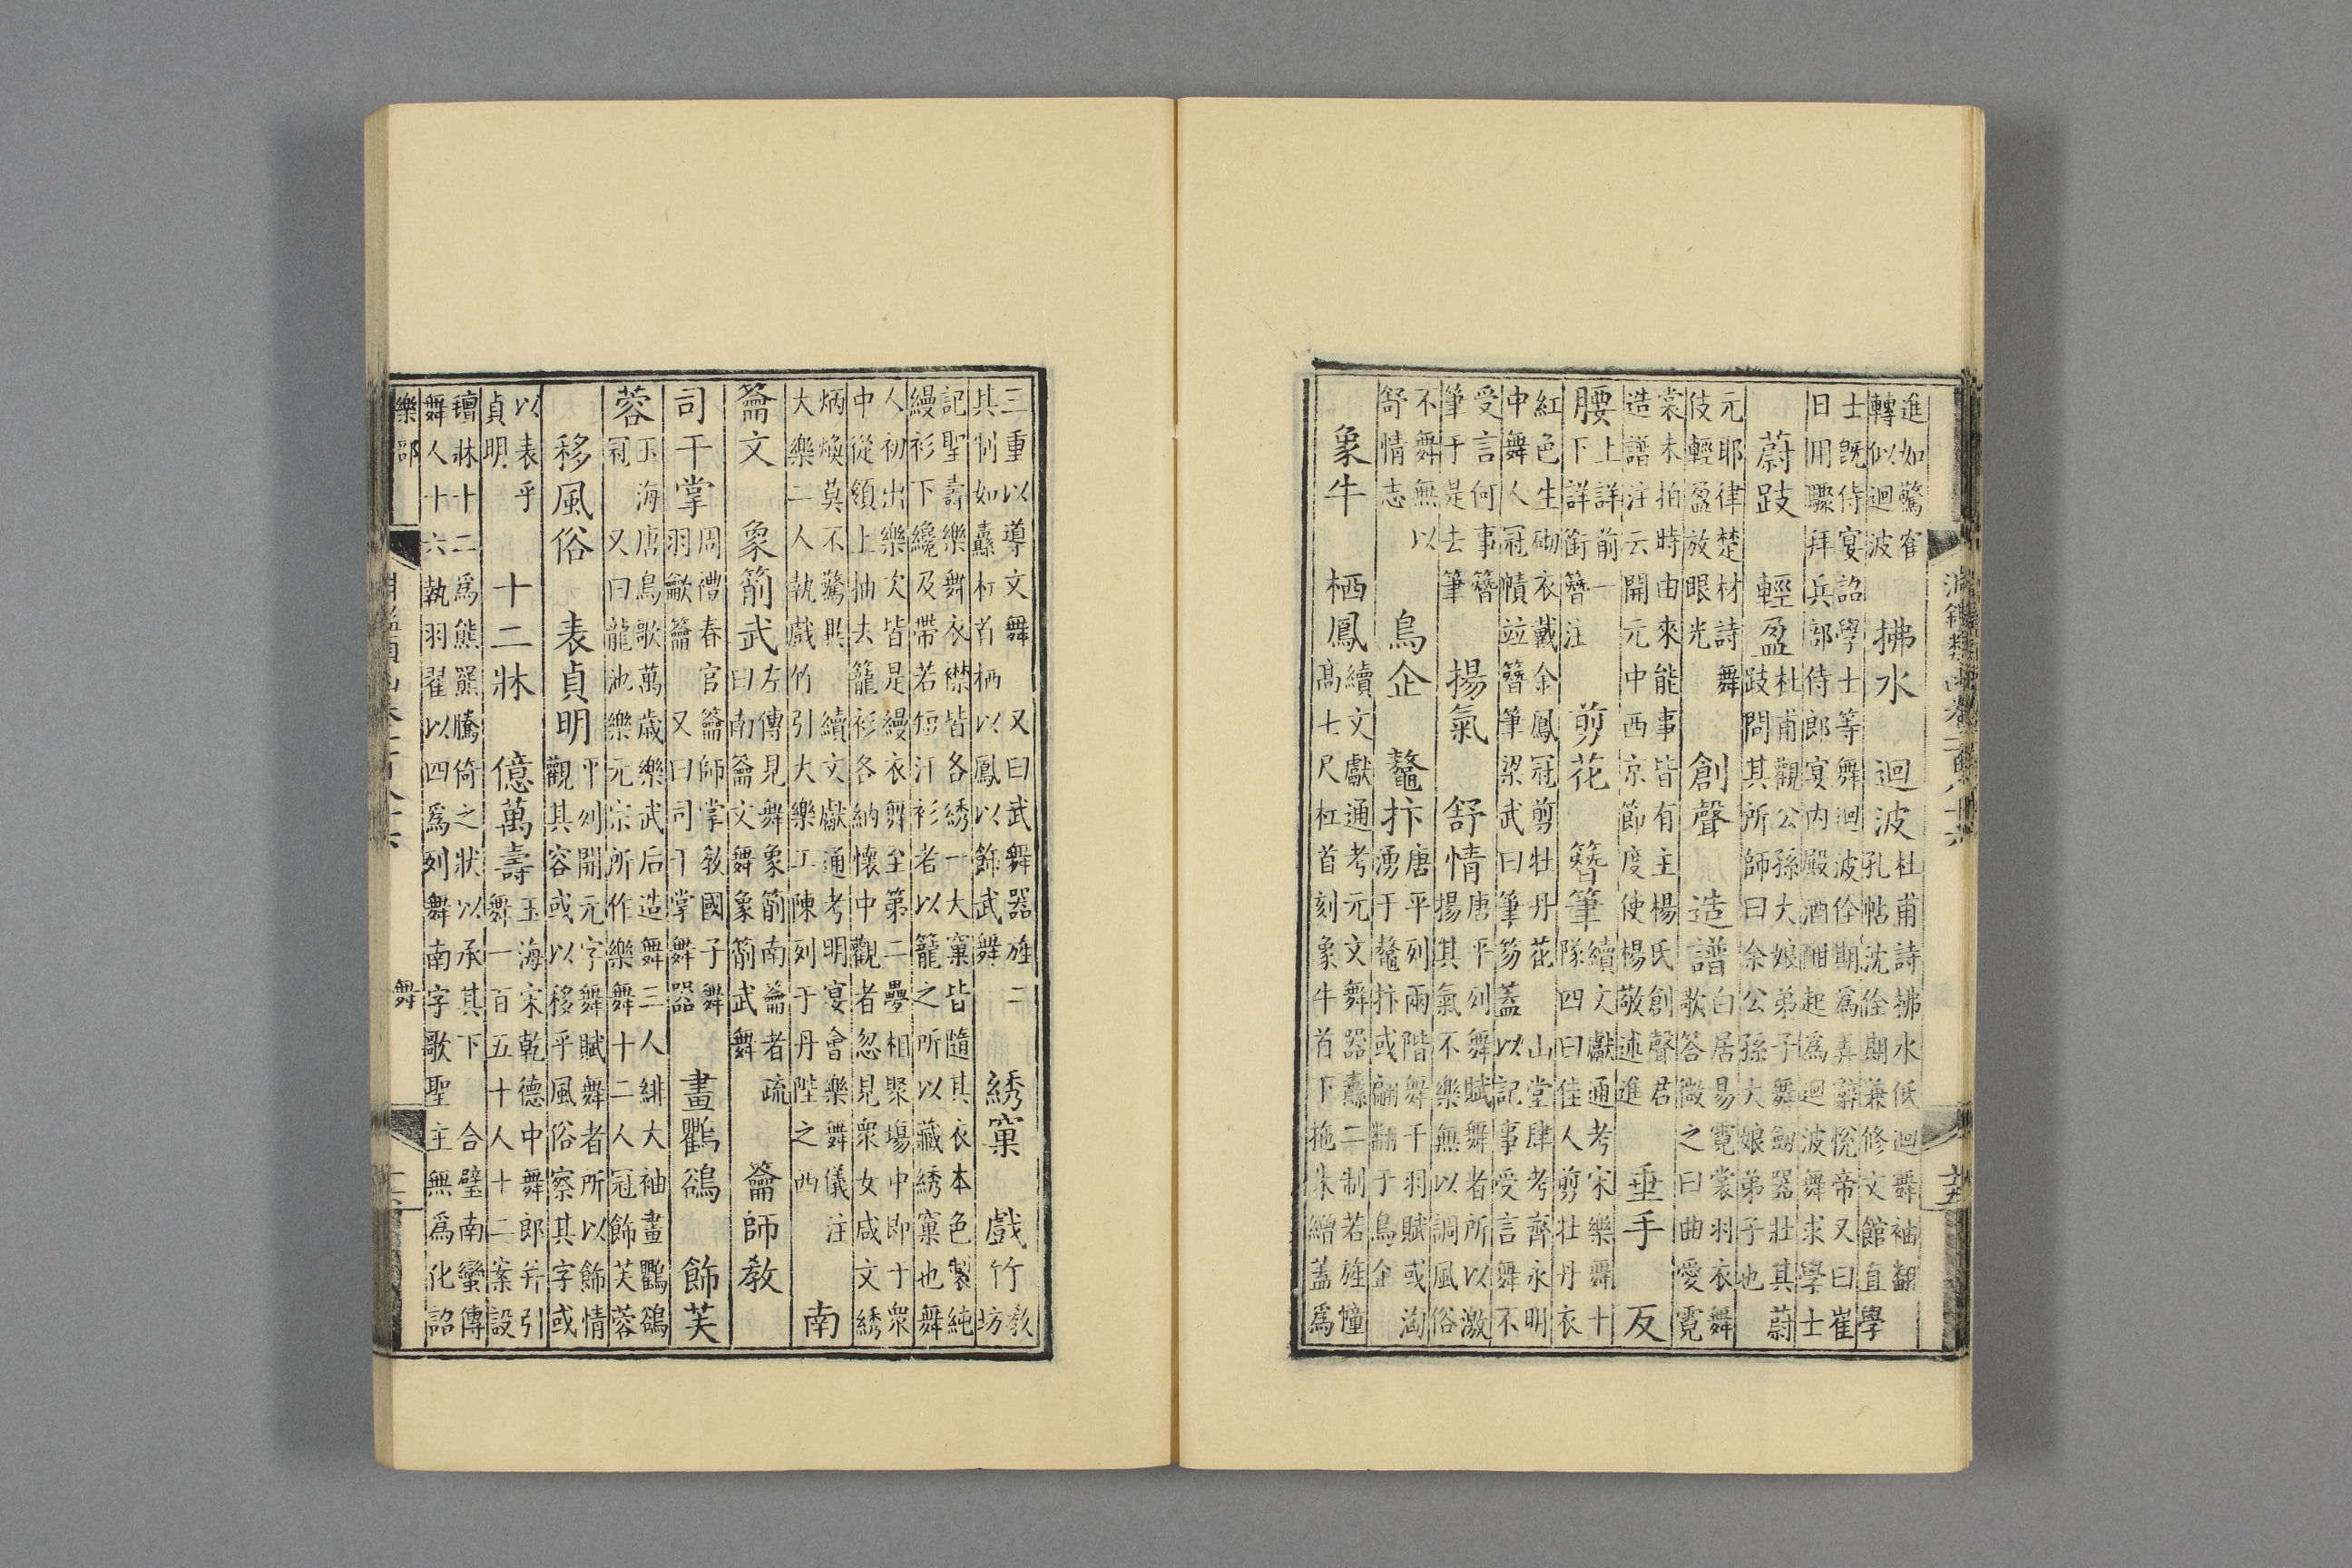 淵鑑類函卷一百八十六
十五
進如驚雀
轉似迴波
拂水 迴波
杜甫詩拂水低迴舞袖翻
孔帖沈佺期兼修文館直學
士既侍宴詔學士等舞迴波佺期為弄辭悅帝又曰崔
日用驟拜兵部侍郎宴內殿酒酣起為迴波舞求學士
蔚跂 輕盈
杜甫觀公孫大娘弟子舞劍器壯其蔚
跂問其所師曰余公孫大娘弟子也
元耶律楚材詩舞
伎輕盈放眼光
創聲 造譜
白居易霓裳羽衣舞
歌答微之曰曲愛霓
裳未拍時由來能事皆有主楊氏創聲君
造譜注云開元中西京節度使楊敬述進
垂手 反
腰
上詳前一
下詳銜簪注
剪花 簪筆
續文獻通考宋樂舞十
隊四曰佳人剪牡丹衣
紅色生砌衣戴金鳳冠剪牡丹花 山堂肆考齊永明
中舞人冠幘竝簪筆梁武曰筆笏蓋以記事受言舞不
受言何事簪
筆于是去筆
揚氣 舒情
唐平列舞賦舞者所以激
揚其氣不樂無以調風俗
不舞無以
舒情志
鳥企 鼇抃
唐平列兩階舞干羽賦或洶
湧于鼇抃或翩翻于鳥企
象牛 栖鳳
續文獻通考元文舞器纛二制若旌幢
高七尺杠首刻象牛首下拖朱繒蓋為
三重以導文舞 又曰武舞器旌二
其制如纛杠首栖以鳳以飾武舞
綉窠 戲竹
教
坊
記聖壽樂舞衣襟皆各綉一大窠皆隨其衣本色製純
縵衫下纔及帶若短汗衫者以籠之所以藏綉窠也舞
人初出樂次皆是縵衣舞至第二疊相聚場中即于衆
中從領上抽去籠衫各納懷中觀者忽見衆女咸文綉
炳煥莫不驚異 續文獻通考明宴會樂舞儀注
大樂二人執戲竹引大樂工陳列于丹陛之西
南
籥文 象箾武
左傳見舞象箾南籥者疏
曰南籥文舞象箾武舞
籥師教
司干掌
周禮春官籥師掌教國子舞
羽龡籥 又曰司干掌舞器
畫鸜鵒 飾芙
蓉
玉海唐鳥歌萬歲樂武后造舞三人緋大袖畫鸜鵒
冠 又曰龍池樂元宗所作樂舞十二人冠飾芙蓉
移風俗 表貞明
平列開元字舞賦舞者所以飾情
觀其容或以移乎風俗察其字或
以表乎
貞明
十二牀 億萬壽
玉海宋乾德中舞郎并引
舞一百五十人十二案設
牀十二為熊羆騰倚之狀以承其下 合璧南蠻傳
舞人十六執羽翟以四為列舞南字歌聖主無為化詔
樂部
舞